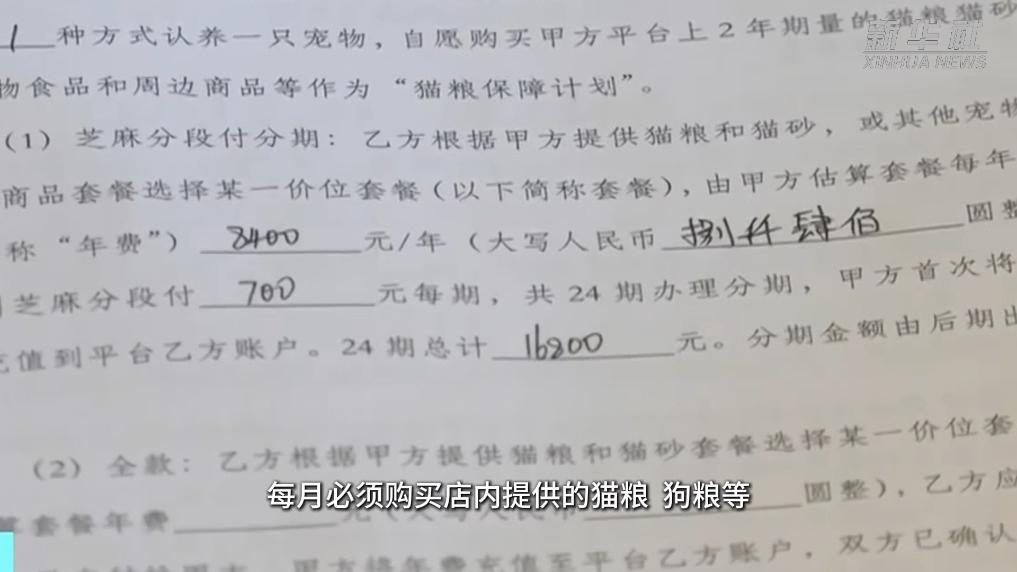 新华社
XINHUA NEWS
1 种方式认养一只宠物，自愿购买甲方平台上 2 年期量的猫粮猫砂
物食品和周边商品等作为“猫粮保障计划”。
(1) 芝麻分段付分期：乙方根据甲方提供猫粮和猫砂，或其他宠物
商品套餐选择某一价位套餐（以下简称套餐），由甲方估算套餐每年
称“年费”）8400 元/年（大写人民币 捌仟肆佰 圆整
芝麻分段付 700 元每期，共 24 期办理分期，甲方首次将
充值到平台乙方账户。24 期总计 16800 元。分期金额由后期出
(2) 全款：乙方根据甲方提供猫粮和猫砂套餐选择某一价位套
套餐年费 元（大写人民币 圆整），乙方应
甲方将年费充值至平台乙方账户，双方已确认
每月必须购买店内提供的猫粮 狗粮等